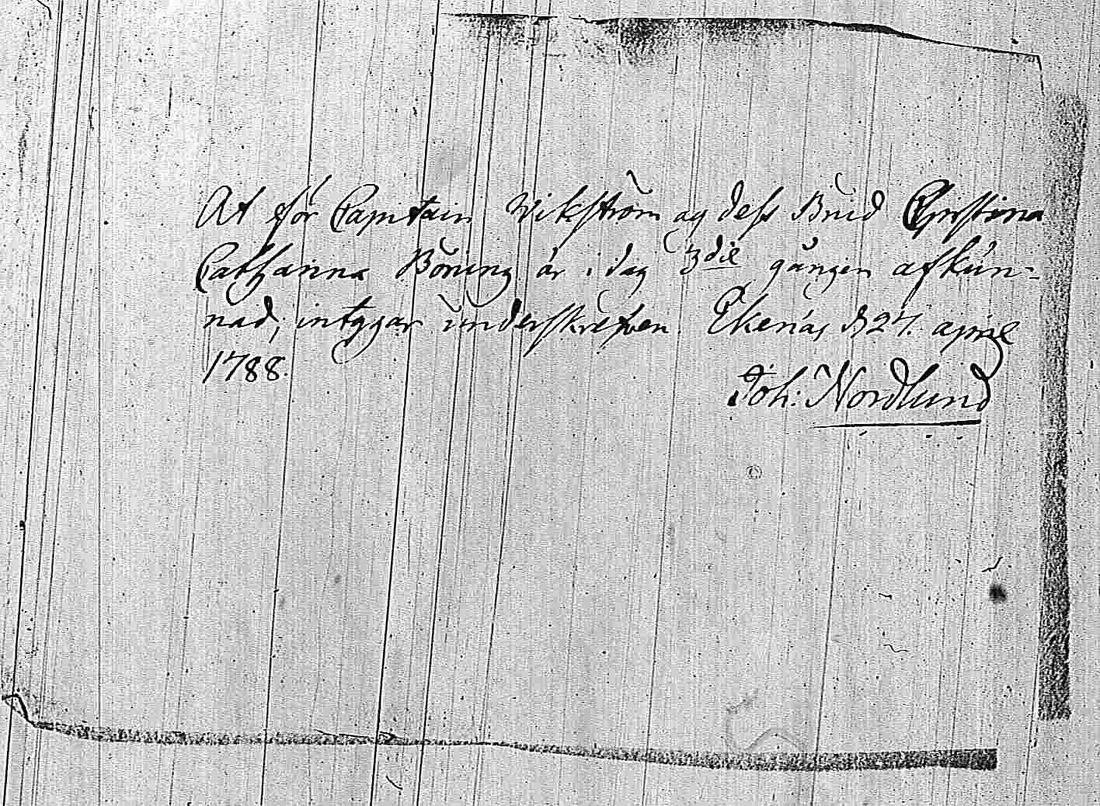 At för Capitain Wikström og dess Brud Christina
Catharina Böning är i dag 3die gången afkun-
nad, intygar underskrefven. Ekenäs d 27. april
1788.
Joh: Nordlund